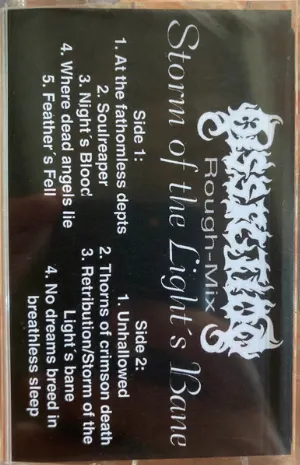 Dissection
Rough-Mix
Storm of the Light´s Bane
Side 1:
1. At the fathomless depts
2. Soulreaper
3. Night´s Blood
4. Where dead angels lie
5. Feather´s Fell
Side 2:
1. Unhallowed
2. Thorns of crimson death
3. Retribution/Storm of the
Light´s bane
4. No dreams breed in
breathless sleep